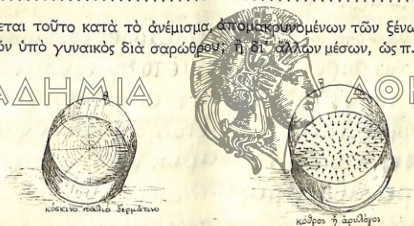 εται τοῦτο κατὰ τὸ ἀνέμισμα, ἀπομακρυνομένων τῶν ξένω
όν ὑπὸ γυναικὸς διὰ σαρώθρου; ἢ δι' ἄλλων μέσων, ὡς π.
ΑΔΗΜΙΑ ΑΘΗ
κόσκινο παλιὸ δερμάτινο
κόθρος ἢ ἀρυλόγος